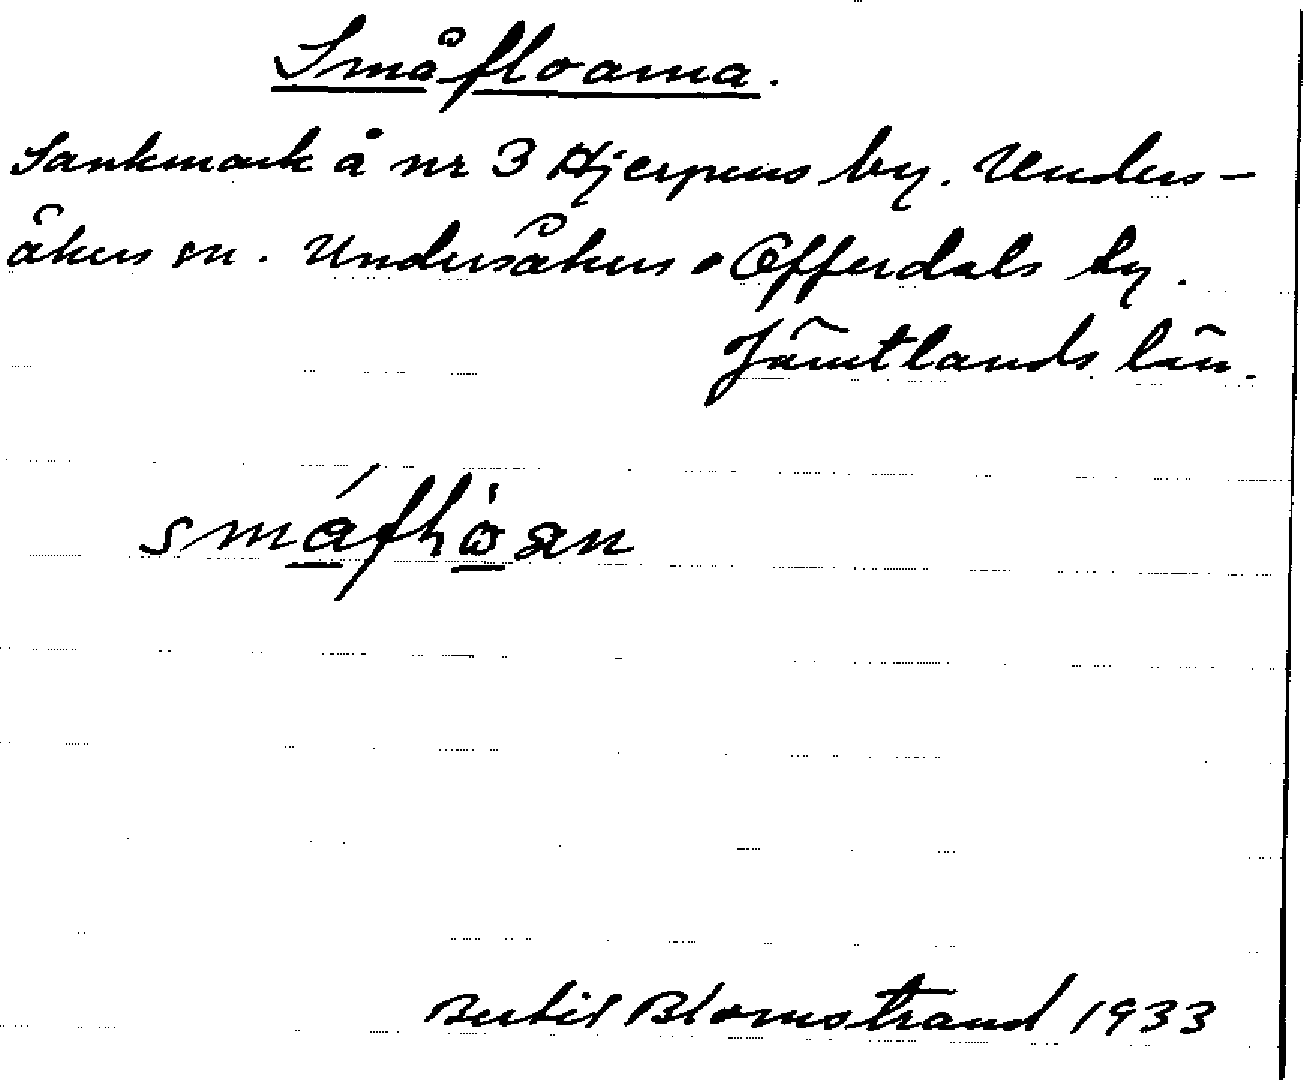 Småfloarna.
Sankmark å nr 3 Hjerpens by. Unders-
åkers sn. Undersåkers o Offerdals by.
Jämtlands län.
småfɫoan
Bertil Blomstrand 1933